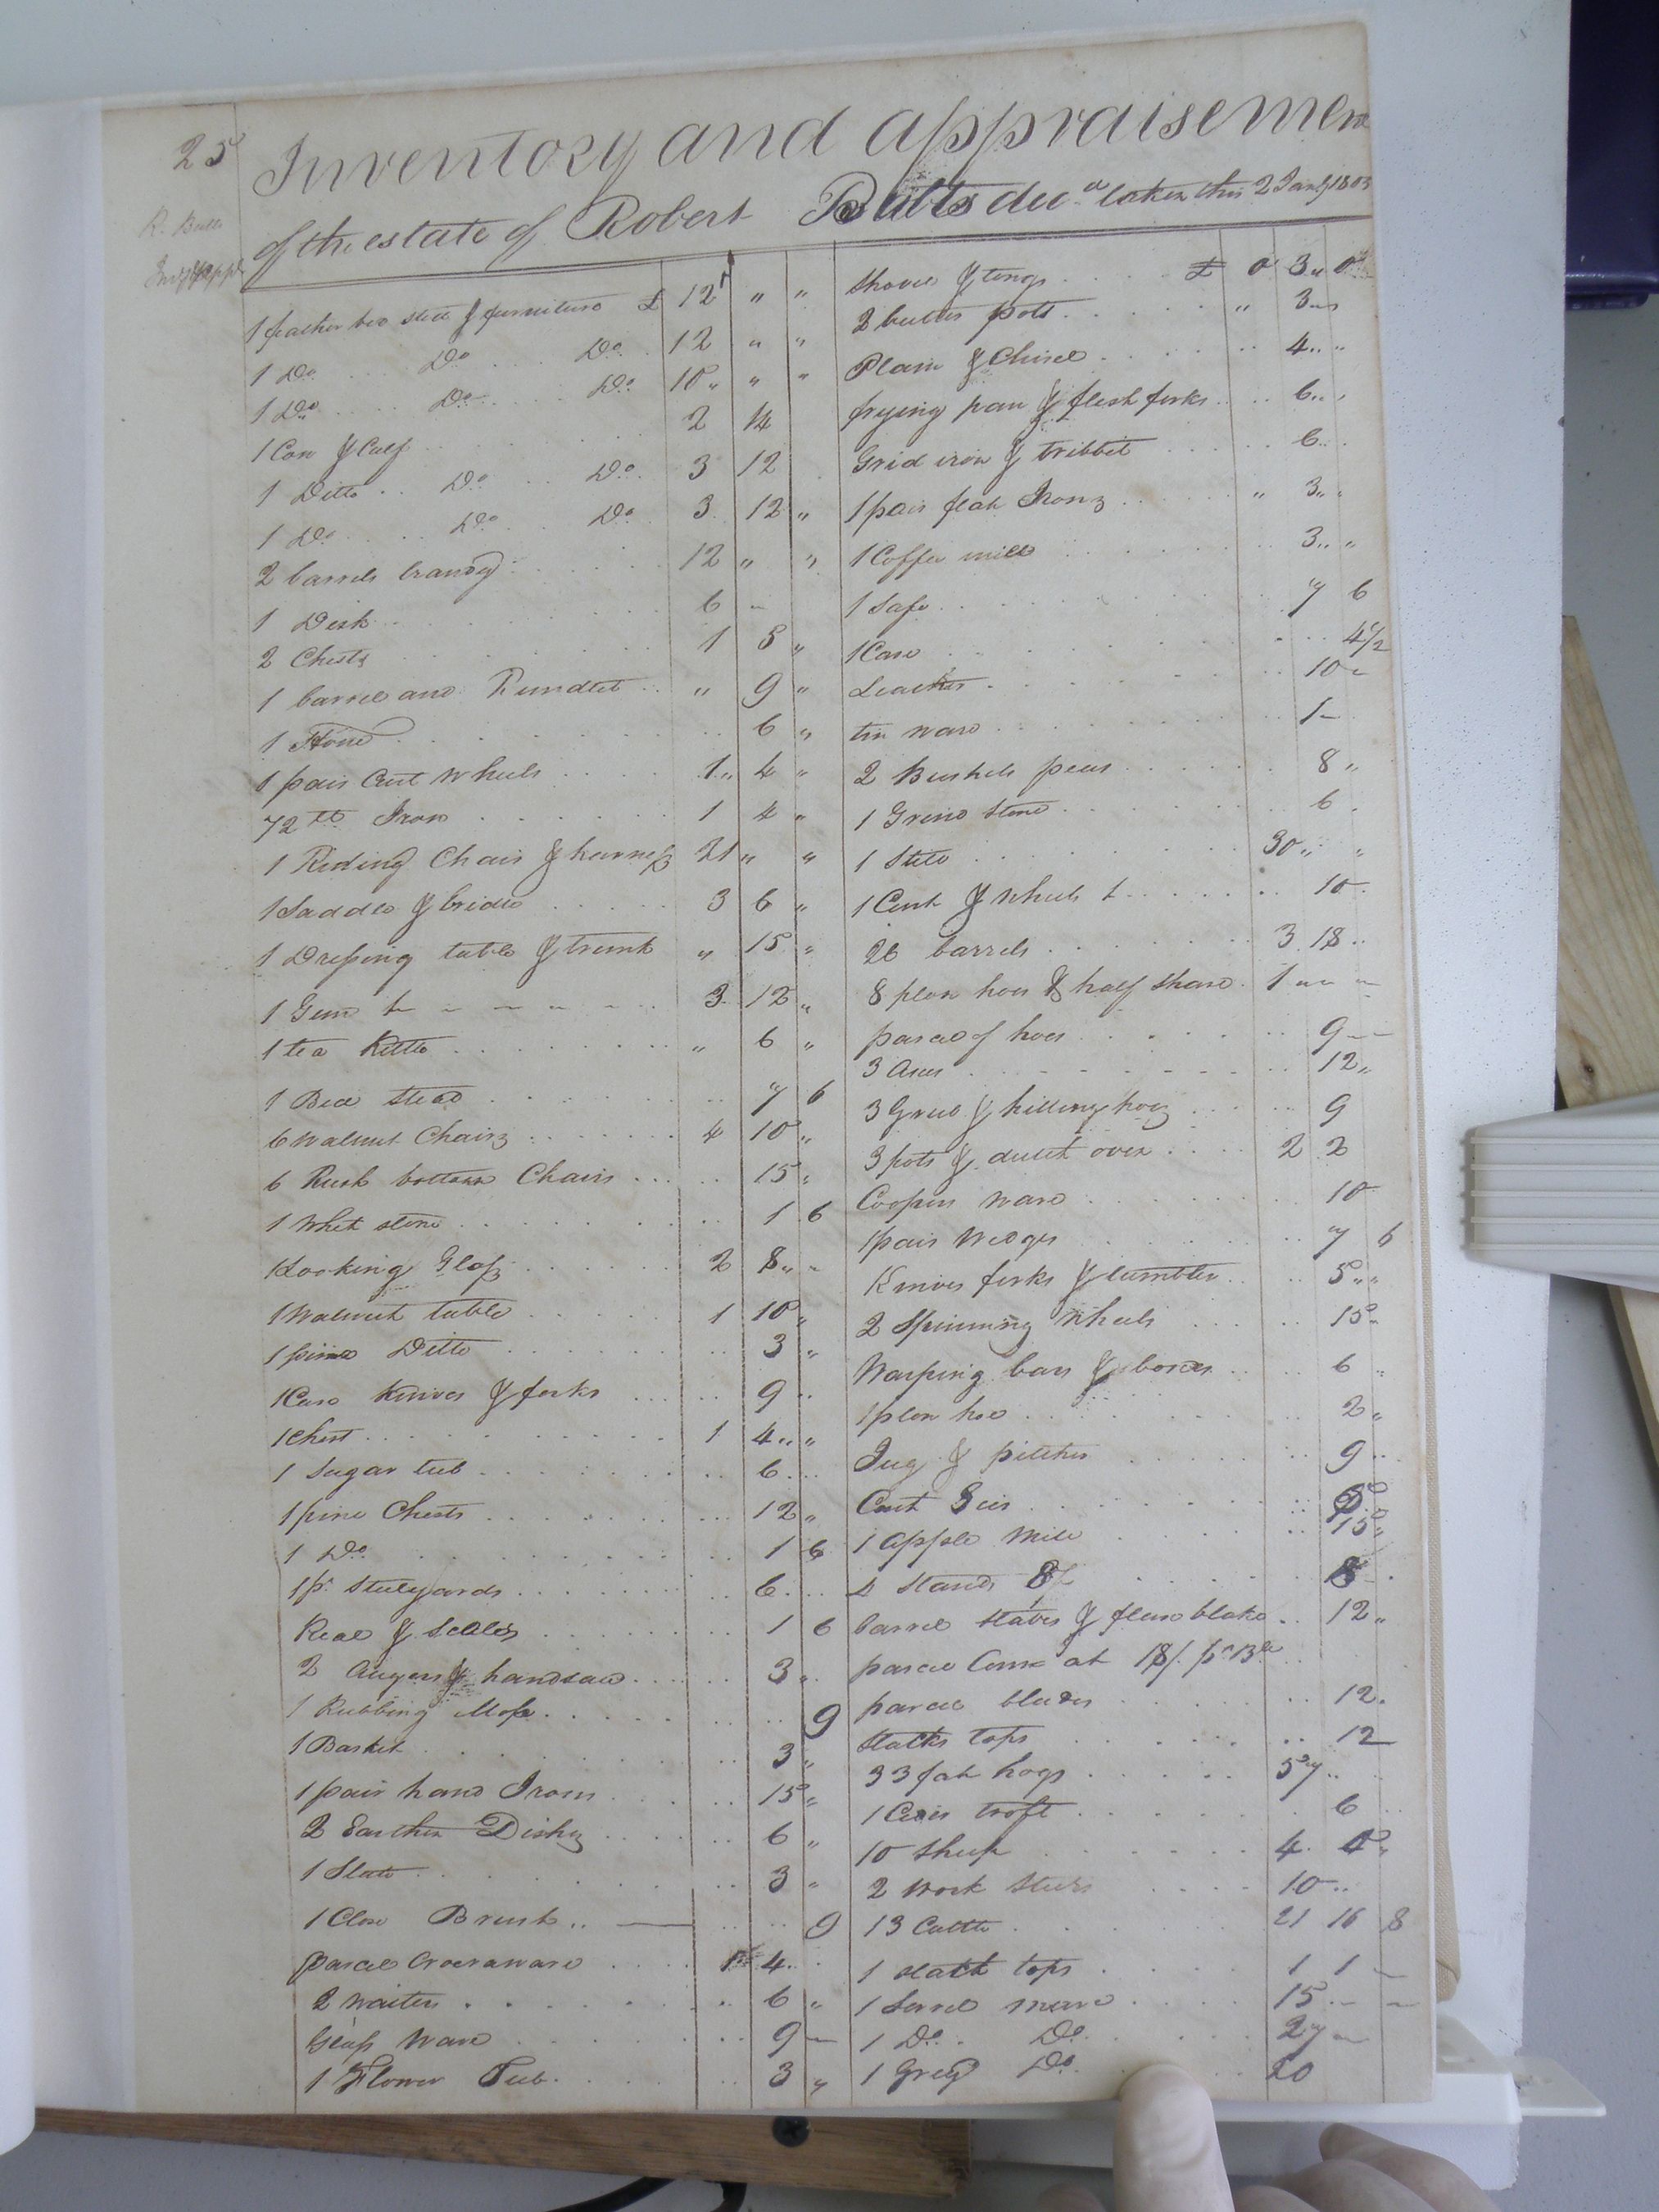 25
Inventory and appraisement
of the estate of Robert Butts dec.d taken this 2 Jany 1803
R. Butts
Invy & appt
1 feather bed sted & furniture £ 12 " "
1 Do Do Do 12 " "
1 Do Do Do 10 " "
1 Cow & Calf 2 14
1 Ditto Do Do 3 12
1 Do Do Do 3 12 "
2 barrels brandy 12 " "
1 Desk 6 -
2 Chests 1 5 "
1 barrel and Rundlet " 9 "
1 Hone 6 "
1 pair Cart Wheels 1 " 4 "
72 lb Iron 1 4 "
1 Riding Chair & harness 21 " "
1 Saddle & bridle 3 6 "
1 Dressing table & trunk " 15 "
1 Gun 3 12 "
1 tea Kettle " 6 "
1 Bed sted 7 6
6 Walnut Chairs 4 10 "
6 Rush bottom Chairs 15 "
1 Whet stone 1 6
1 Looking Glass 2 8 "
1 Walnut table 1 10 "
1 pine Ditto 3 "
1 Case Knives & forks 9
1 Chest 1 4 " "
1 Sugar tub 6
1 pine Chests 12 "
1 Do 1 6
1 pr. Stilyards 6
Real & 1 6
2 Augers & handsaw 3 "
1 Rubbing 9
1 Basket 3 "
1 pair hand Irons 15 "
2 Earthen Dishes 6 "
1 Slate 3 "
1 Close Brush 9
parcel Crockaware 4
2 Waiters 6 "
Glass Ware 9 -
1 Flower Tub 3 "
Shovel & tongs £ 0 3 " 0
2 butter pots " 3 "
Plain & Chisel 4 " "
frying pan & flesh forks 6 " "
Grid iron & tribbet 6
1 pair flat Irons " 3 "
1 Coffee mill 3 " "
1 Safe 7 6
1 Case 4 1/2
Leather 10 -
tin ware 1 -
2 Bushels peas 8 "
1 Grind Stone 6
1 Still 30 " "
1 Cart & Wheels 10
26 barrels 3 18
8 plow hoes & half Share 1 " "
parcel of hoes 9 -
3 Axes 12 "
3 Grub & hilling hoes 9
3 pots & dutch oven 2 2
Coopers Ware 10
1 pair Wedges 7 6
Knives forks & tumbler 5 " "
2 Spinning Wheels 15 "
Warping bars & boxes 6 "
1 plow hoe 2 "
Jug & pitcher 9
Cart Geir
1 Apple Mill 15 "
Stands 8/ 8
barrel staves & 12 "
parcel Corn at 18/ pr Bl.
parcel blades 12
Stacks tops 12
33 fat hogs 57
1 troft 6
10 Sheep 4
2 Work Steers 10
13 Cattle 21 16 8
1 stack tops 1 1 -
1 Sorrel mare 15 - -
1 Do Do 27 -
1 Grey Do 20